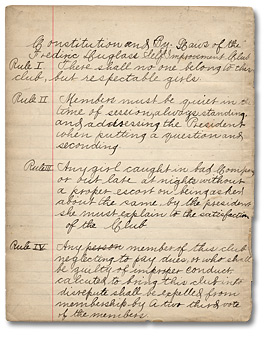 Constitution and By. Laws of the
Frederic Duglass Self Improvement Club
Rule I There shall no one belong to this
club, but respectable girls
Rule II Members must be quiet in the
time of session, always standing
and addressing the President
when putting a question and
seconding
Rule III Any girl caught in bad Company
or out late at nights without
a proper escort on being asked
about the same by the president
she must explain to the satisfaction
of the Club
Rule IV. Any person member of this club
neglecting to pay dues, or who shall
be guilty of improper conduct
calcuted to bring this club into
disrepute shall be expelled from
membership by a two third vote
of the members